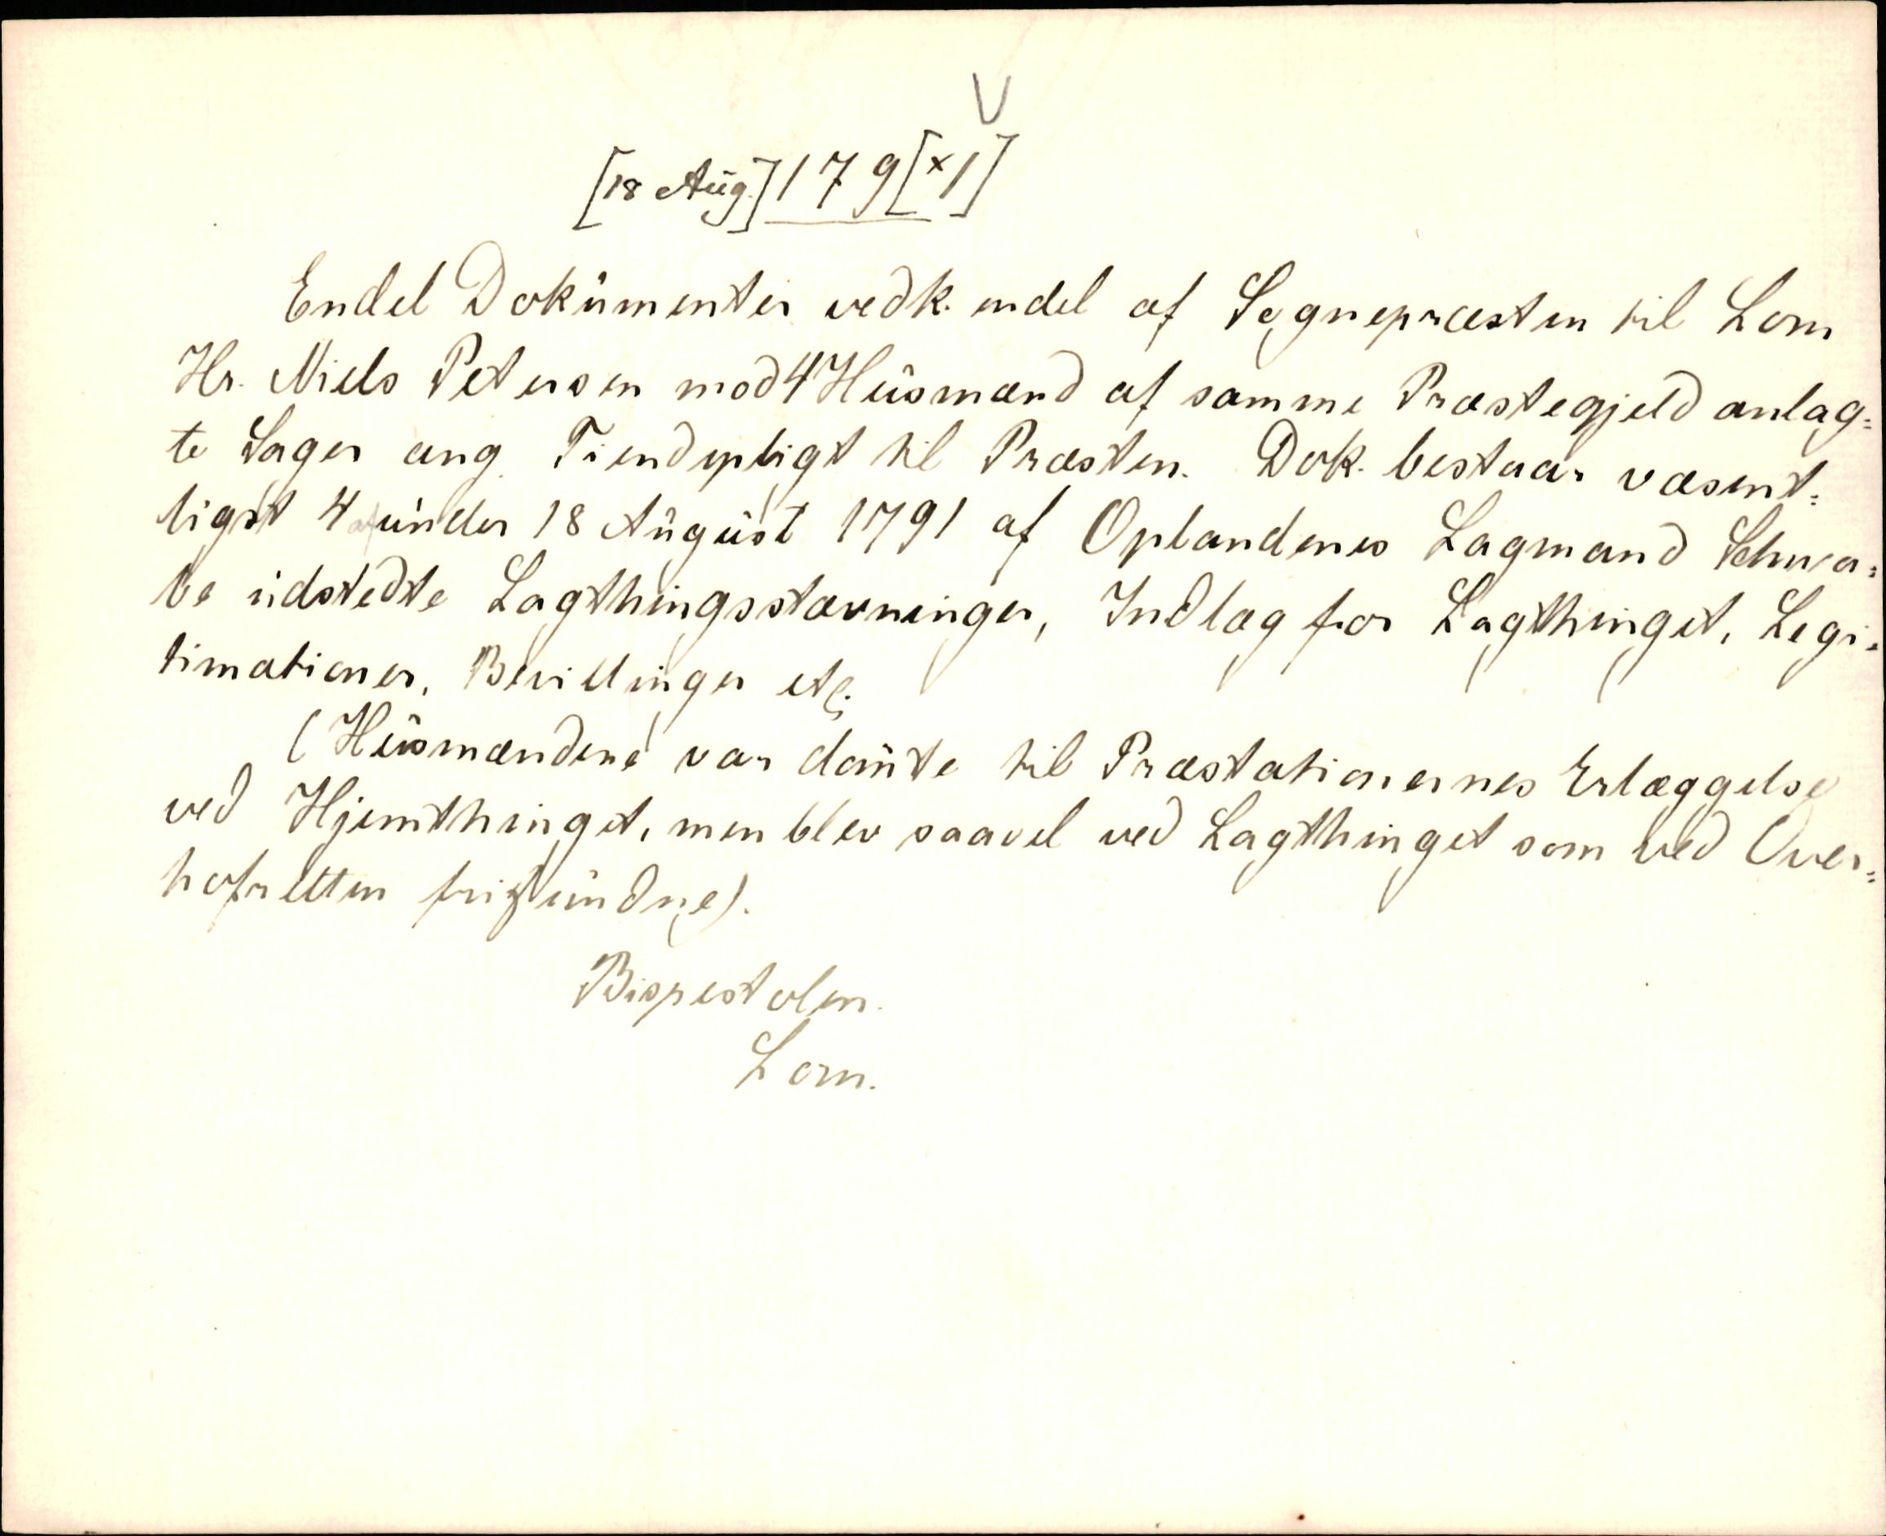 V
[18 Aug.] 179[x1]
Endel Dokumenter vedk. endel af Sognepræsten til Lom
Hr. Niels Petersen mod 4 Husmænd af samme Præstegjeld anlag=
te Sager ang. Tiendepligt til Præsten. Dok. bestaar væsent=
ligst 4 af under 18 August 1791 af Oplandenes Lagmand Schwa=
be udstedte Lagthingsstævninger, Indlæg for Lagthinget, Legi=
timationer, Bevillinger etc.
(Husmændene var dømte til Præstationernes Erlæggelse
ved Hjemthinget, men blev saavel ved Lagthinget som ved Over=
hofretten frifundne).
Bispestolen.
Lom.